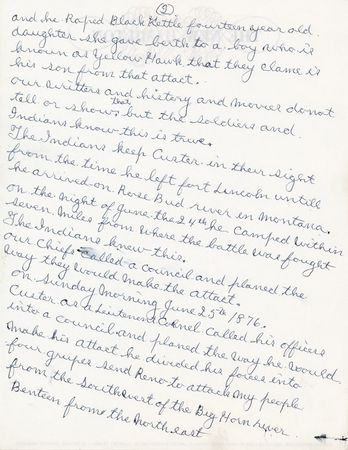 (2)
and he Raped Black Kettle fourteen year old
daughter she gave berth to a boy who is
known as Yellow Hawk that they clame is
his son from that attact.
our writters and history and movies do not
tell or show that but the soldiers and
Indians know this is true.
The Indians keep Custer in their sight
from the time he left fort Lincoln untill
he arrived on Rose Bud river in Montana.
on the night of June the 24th he camped within
seven miles from where the battle was fought
The Indians knew this.
our Chiefs called a council and planed the
way they would make the attact.
on Sunday Morning June 25th 1876.
Custer as a Lieutenant Colonel called his officers
into a council and planed the way he would
make his attact he divided his forces into
four grupes send Reno to attact my people
from the southwest of the Big Horn river.
Benteen from the Northeast